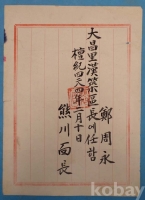 鄭周永
大昌里漢築區長에任함
檀紀四二八四年二月十日
熊川面長
kobay